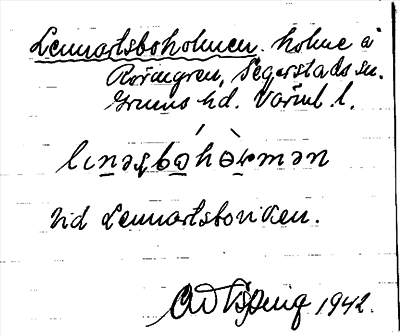 Lennartsboholmen. holme i
Rörmgren, Segerstads sn.
Grums hd. Värml. l.
lɩnəʂbo̠hòrmən
vid Lennartsboviken.
1942.